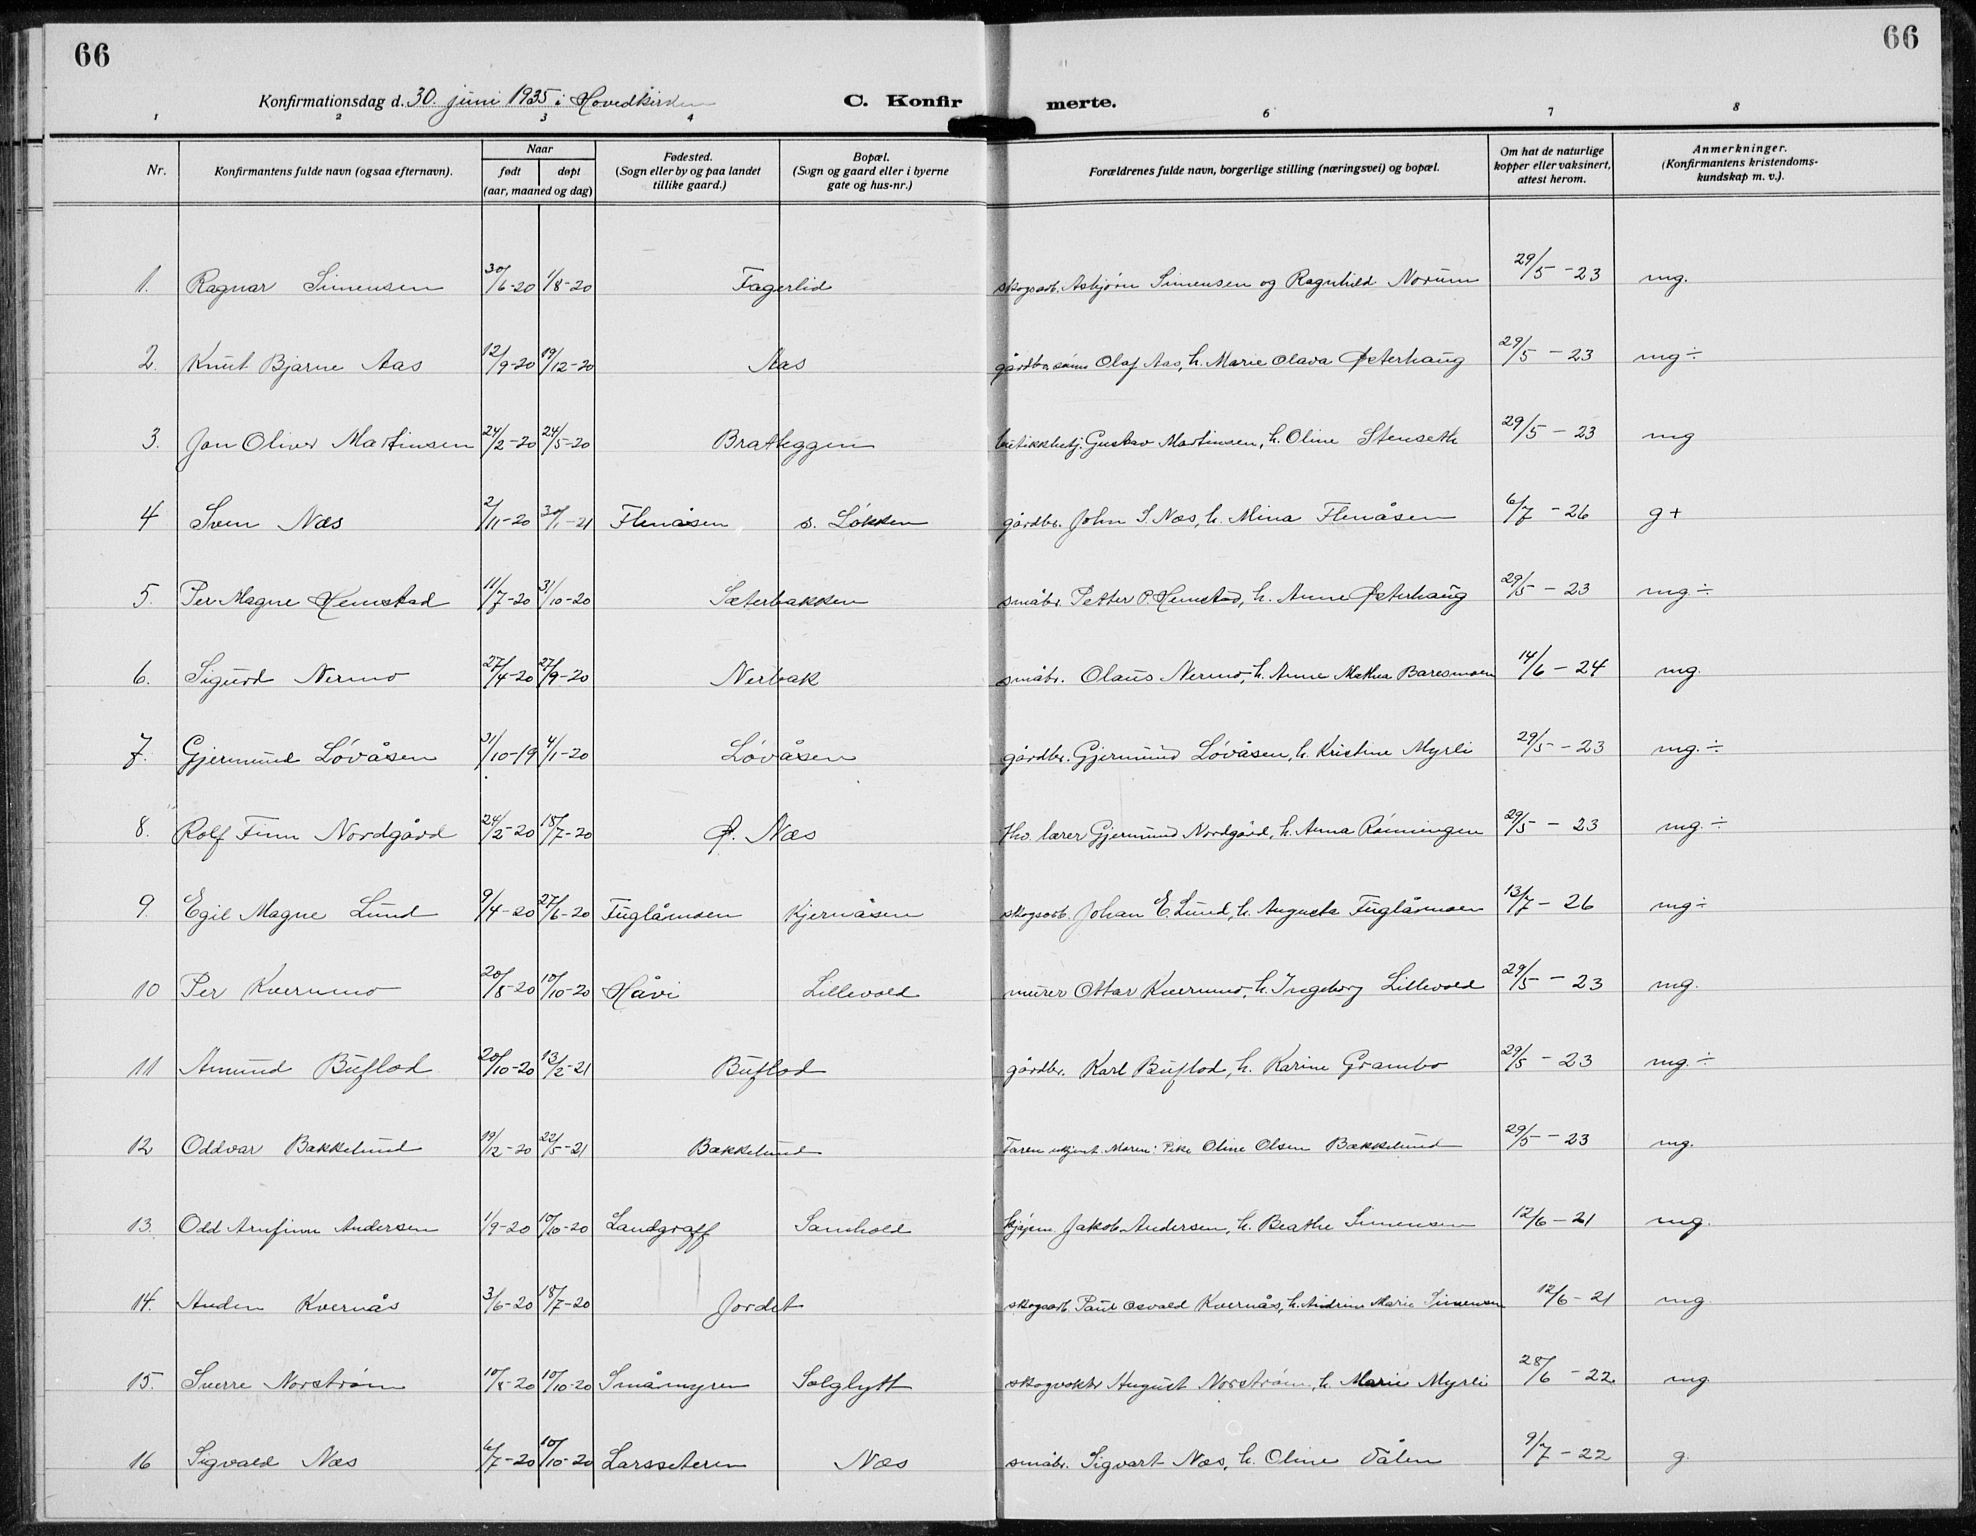 66
66
Konfirmationsdag d. 30. juni 1935 i Hovedkirken
C. Konfirmerte.
1 2 3 4 6 7 8
Nr.
Konfirmantens fulde navn (ogsaa efternavn).
Naar
født døpt
(aar, maaned og dag)
Fødested.
(Sogn eller by og paa landet
tillike gaard.)
Bopæl.
(Sogn og gaard eller i byerne
gate og hus-nr.)
Forældrenes fulde navn, borgerlige stilling (næringsvei) og bopæl.
Om hat de naturlige
kopper eller vaksinert,
attest herom.
Anmerkninger.
(Konfirmantens kristendoms-
kundskap m. v.).
1. Ragnar Simensen 30/6-20 1/8-20 Fagerlid skogsarb. Asbjørn Simensen og Ragnhild Norum 29/5-23 mg.
2. Knut Bjarne Aas 12/9-20 19/12-20 Aas gårdbr. sønn Olaf Aas, h. Marie Olava Østerhaug 29/5-23 mg÷
3. Jon Oliver Martinsen 24/2-20 24/5-20 Brateggen butikkbetj. Gustav Martinsen, h. Oline Stenseth 29/5-23 mg
4 Sven Næs 2/11-20 30/1-21 Flenåsen s. Løkken gårdbr. John S. Næs, h. Mina Flenåsen 6/7-26 g+
5. Per Magne Hemstad 11/7-20 31/10-20 Sæterbakken småbr. Petter P. Hemstad, h. Anne Østerhaug 29/5-23 mg÷
6. Sigurd Nermo 27/4-20 27/9-20 Nerbak småbr. Olaus Nermo, h. Anne Mathea Baresmoen 14/6-24 mg.
7. Gjermund Løvåsen 31/10-19 4/1-20 Løvåsen gårdbr. Gjermund Løvåsen, h. Kristine Myrli 29/5-23 mg.÷
8. Rolf Finn Nordgård 24/2-20 18/7-20 Ø. Næs fhv. lærer Gjermund Nordgård, h. Anna Rønningen 29/5-23 mg.÷
9. Egil Magne Lund 9/4-20 27/6-20 Fuglåmoen Kjernåsen skogsarb. Johan E. Lund, h. Augusta Fuglåmoen 13/7-26 mg÷
10 Per Kvernmo 20/8-20 10/10-20 Håvi Lillevold murer Ottar Kvernmo, h. Ingeborg Lillevold 29/5-23 mg.
11 Amund Buflod 20/10-20 13/2-21 Buflod gårdbr. Karl Buflod, h. Karine Grambo 29/5-23 mg.÷
12 Oddvar Bakkelund 19/12-20 22/5-21 Bakkelund Faren ukjent. Moren: Pike Oline Olsen Bakkelund 29/5-23 mg.
13. Odd Arnfinn Andersen 1/9-20 10/10-20 Landgraff Samhold Jakob Andersen, h. Beathe Simensen 12/6-21 mg.
14. Auden Kvernås 3/6-20 18/7-20 Jordet skogsarb. Paul Osvald Kvernås, h. Andrine Marie Simensen 12/6-21 mg
15. Sverre Norstrøm 10/8-20 10/10-20 Småmyren Solglytt skogvokter August Norstrøm, h. Marie Myrli 28/6-22 mg
16 Sigvald Næs 6/7-20 10/10-20 Larsseteren Næs småbr. Sigvart Næs, h. Oline Vålen 9/7-22 g.